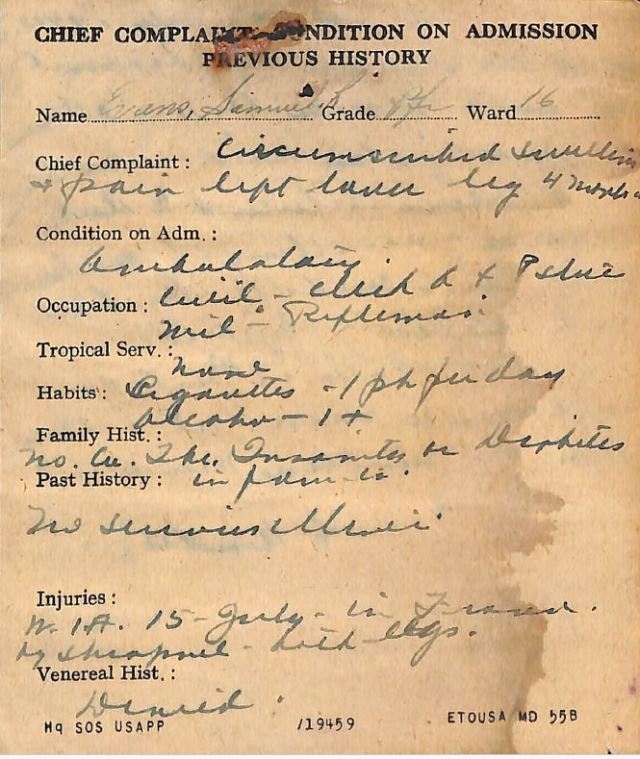 CHIEF COMPLAINT, CONDITION ON ADMISSION
PREVIOUS HISTORY
Name Evans, Samuel Grade Pfc Ward 16
Chief Complaint: Circumscribed swelling
+ pain left lower leg 4 months
Condition on Adm.:
Ambulatory.
Occupation: Civil - Clerk A + P store
Mil - Rifleman.
Tropical Serv.:
None
Habits: Cigarettes - 1 pk per day
Alcohol - 1+
Family Hist.:
No. Ca. Tbc. Insanity or Diabetes
Past History: in family.
No serious illness.
Injuries:
W.I.A. 15 - July - in France.
by shrapnel - both legs.
Venereal Hist.:
Denied.
Hq SOS USAPP /19459 ETOUSA MD 55B